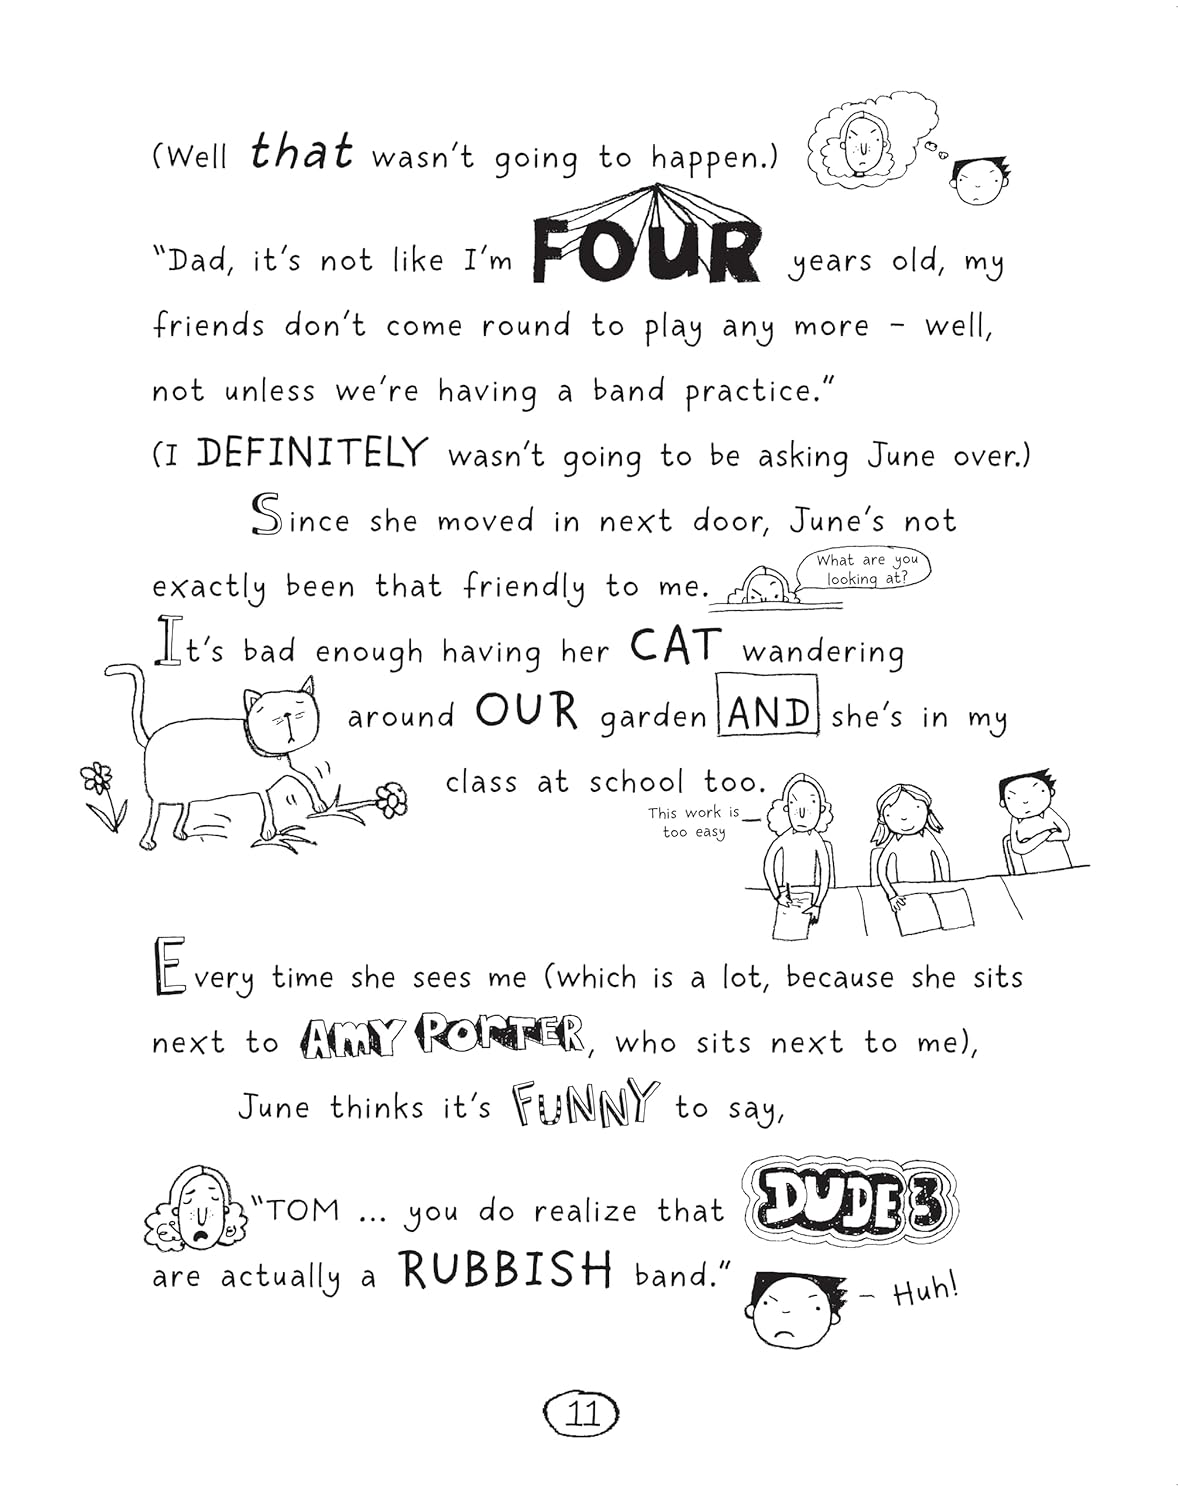 (Well that wasn't going to happen.)
"Dad, it's not like I'm FOUR years old, my
friends don't come round to play any more – well,
not unless we're having a band practice."
(I DEFINITELY wasn't going to be asking June over.)
Since she moved in next door, June's not
exactly been that friendly to me.
What are you
looking at?
It's bad enough having her CAT wandering
around OUR garden AND she's in my
class at school too.
This work is
too easy
Every time she sees me (which is a lot, because she sits
next to AMY PORTER, who sits next to me),
June thinks it's FUNNY to say,
"TOM ... you do realize that DUDE3
are actually a RUBBISH band."
– Huh!
11